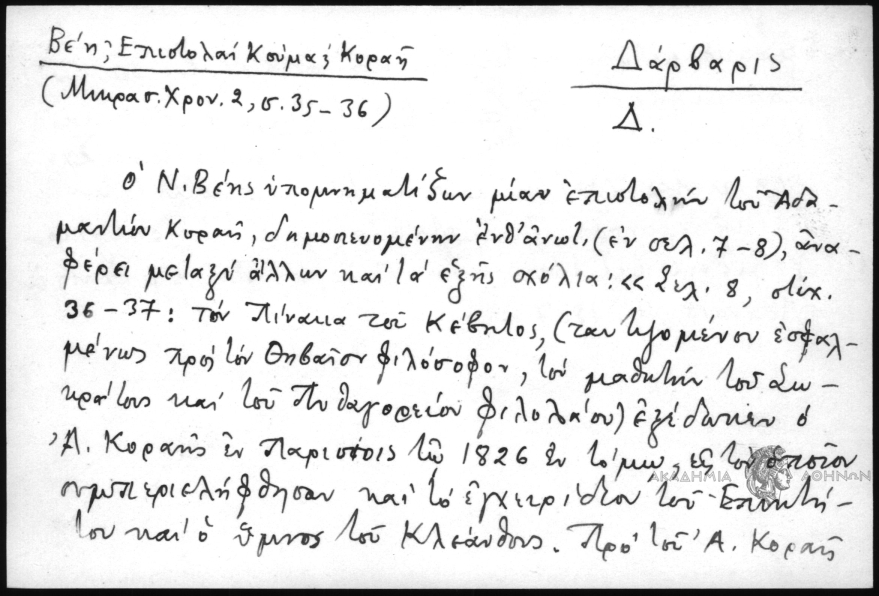 Βέη, Ἐπιστολαί Κούμα ξ Κοραῆ
(Μικρασ. Χρον. 2, σ. 35-36)
Δάρβαρις
Δ.
Ὁ Ν. Βέης ὑπομνηματίζων μίαν ἐπιστολήν τοῦ Ἀδα-
μαντίου Κοραῆ, δημοσιευομένην ἐνθ' ἀνωτ. (ἐν σελ. 7-8), ἀνα-
φέρει μεταξύ ἄλλων καί τά ἑξῆς σχόλια: «Σελ. 8, στίχ.
36-37: Τόν Πίνακα τοῦ Κέβητος, (ταυτιζομένου ἐσφαλ-
μένως πρός τόν Θηβαῖον φιλόσοφον, τόν μαθητήν τοῦ Σω-
κράτους καί τοῦ Πυθαγορείου Φιλολάου) ἐξέδωκεν ὁ
Ἀ. Κοραῆς ἐν Παρισίοις τῷ 1826 ἐν τόμῳ, εἰς τόν ὁποῖον
συμπεριελήφθησαν καί τό ἐγχειρίδιον τοῦ Ἐπικτή-
του καί ὁ ὕμνος τοῦ Κλεάνθους. Πρό τοῦ Ἀ. Κοραῆ
ΑΚΑΔΗΜΙΑ ΑΘΗΝΩΝ